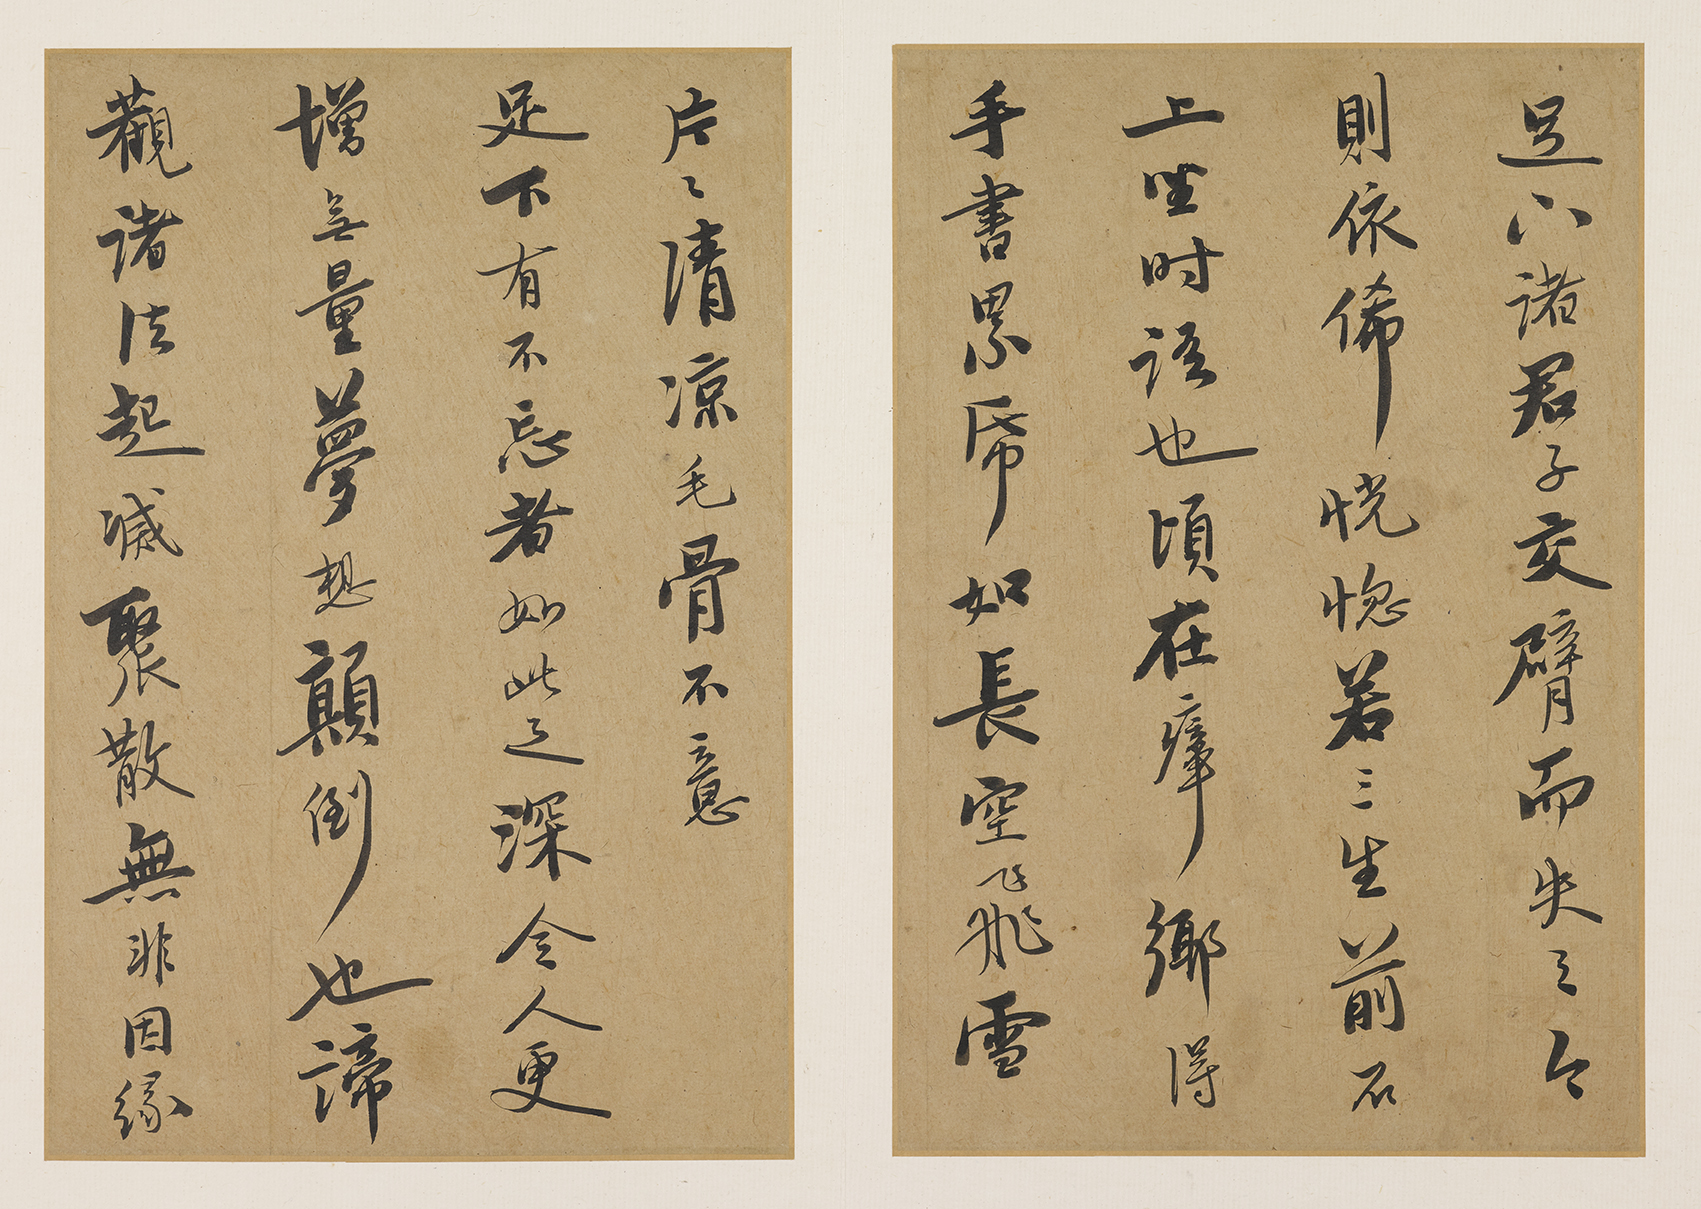 足下諸君子交臂而失之今
則依俙恍惚若三生前石
上坐时語也頃在瘴鄉得
手書累帋如長空飛雪
片〻清凉毛骨不意
足下有不忘者如此之深令人更
增無量夢想顛倒也諦
觀諸法起滅聚散無非因緣